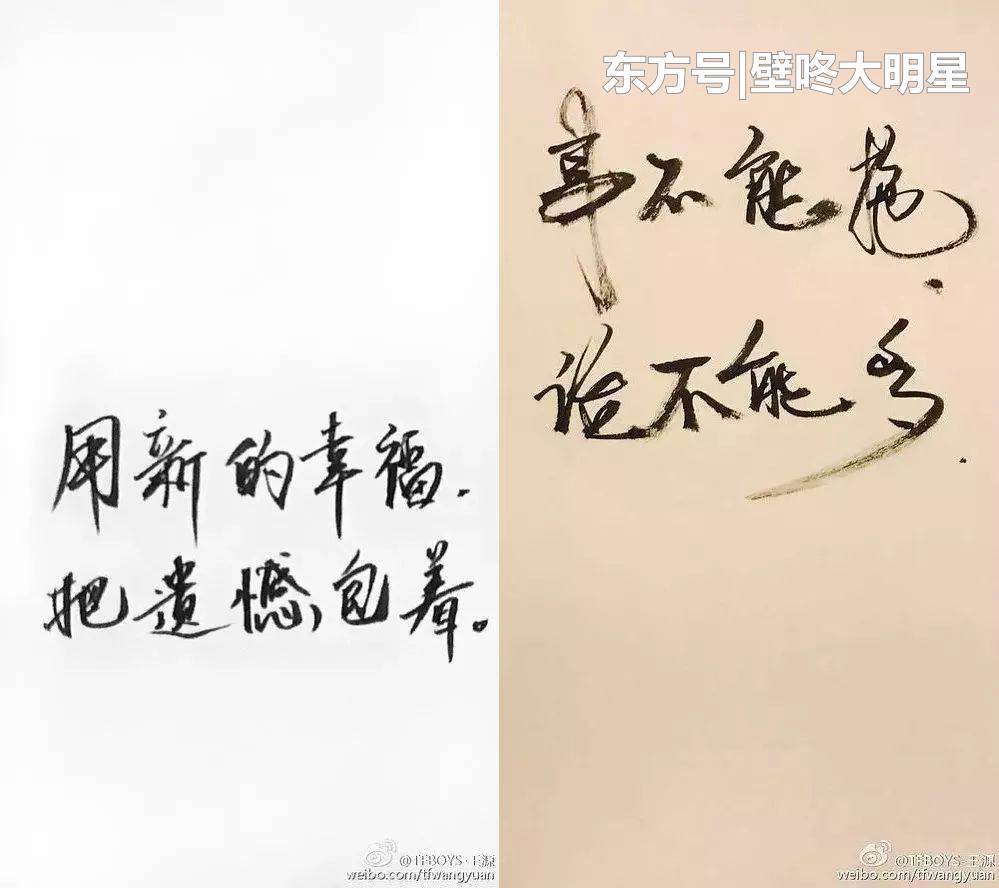 用新的幸福.
把遗憾包着。
@TFBOYS-王源
weibo.com/tfwangyuan
东方号|壁咚大明星
事不能拖.
话不能多.
@TFBOYS-王源
weibo.com/tfwangyuan